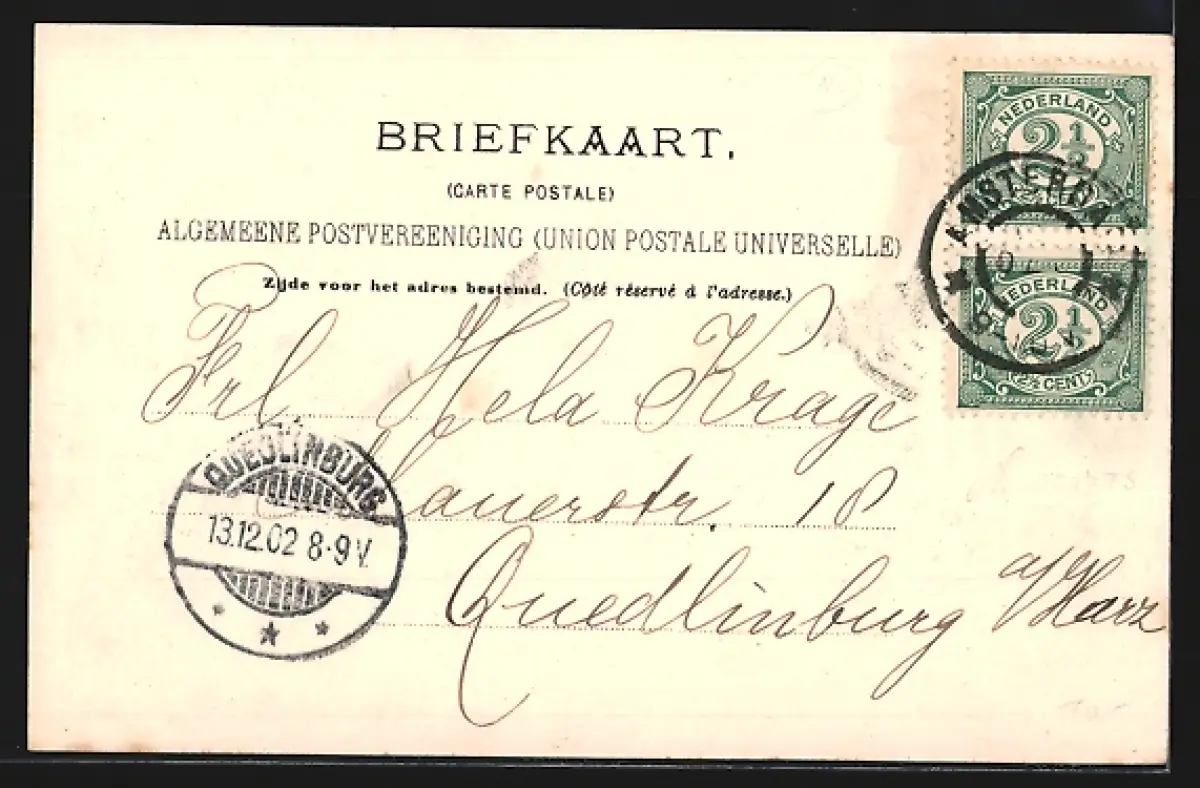 BRIEFKAART.
(CARTE POSTALE)
ALGEMEENE POSTVEREENIGING (UNION POSTALE UNIVERSELLE)
Zijde voor het adres bestemd. (Côté réservé à l'adresse.)
NEDERLAND
2½
AMSTERDAM
NEDERLAND
2½
2½ CENT
Frl. Hela Krage
18
Quedlinburg a/Harz
QUEDLINBURG
13.12.02 8-9V.